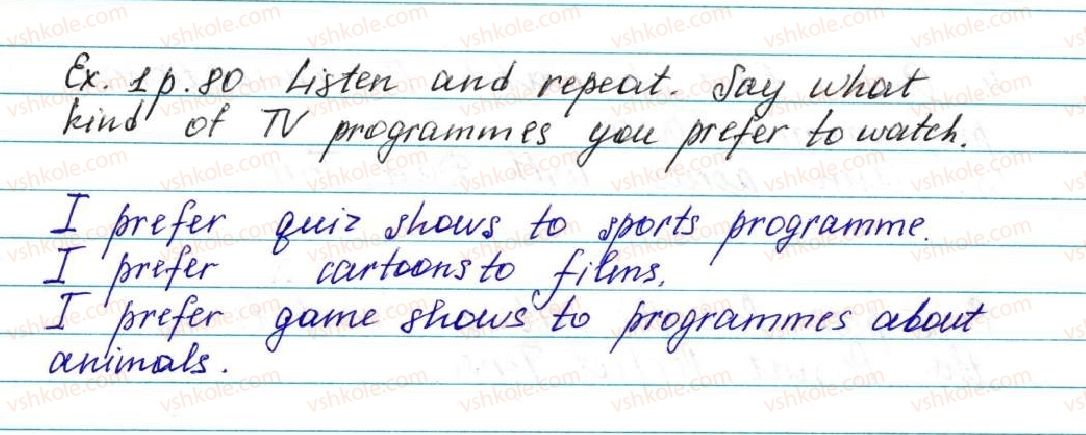 Ex. 1 p. 80 Listen and repeat. Say what
kind of TV programmes you prefer to watch.
I prefer quiz shows to sports programme.
I prefer cartoons to films.
I prefer game shows to programmes about
animals.